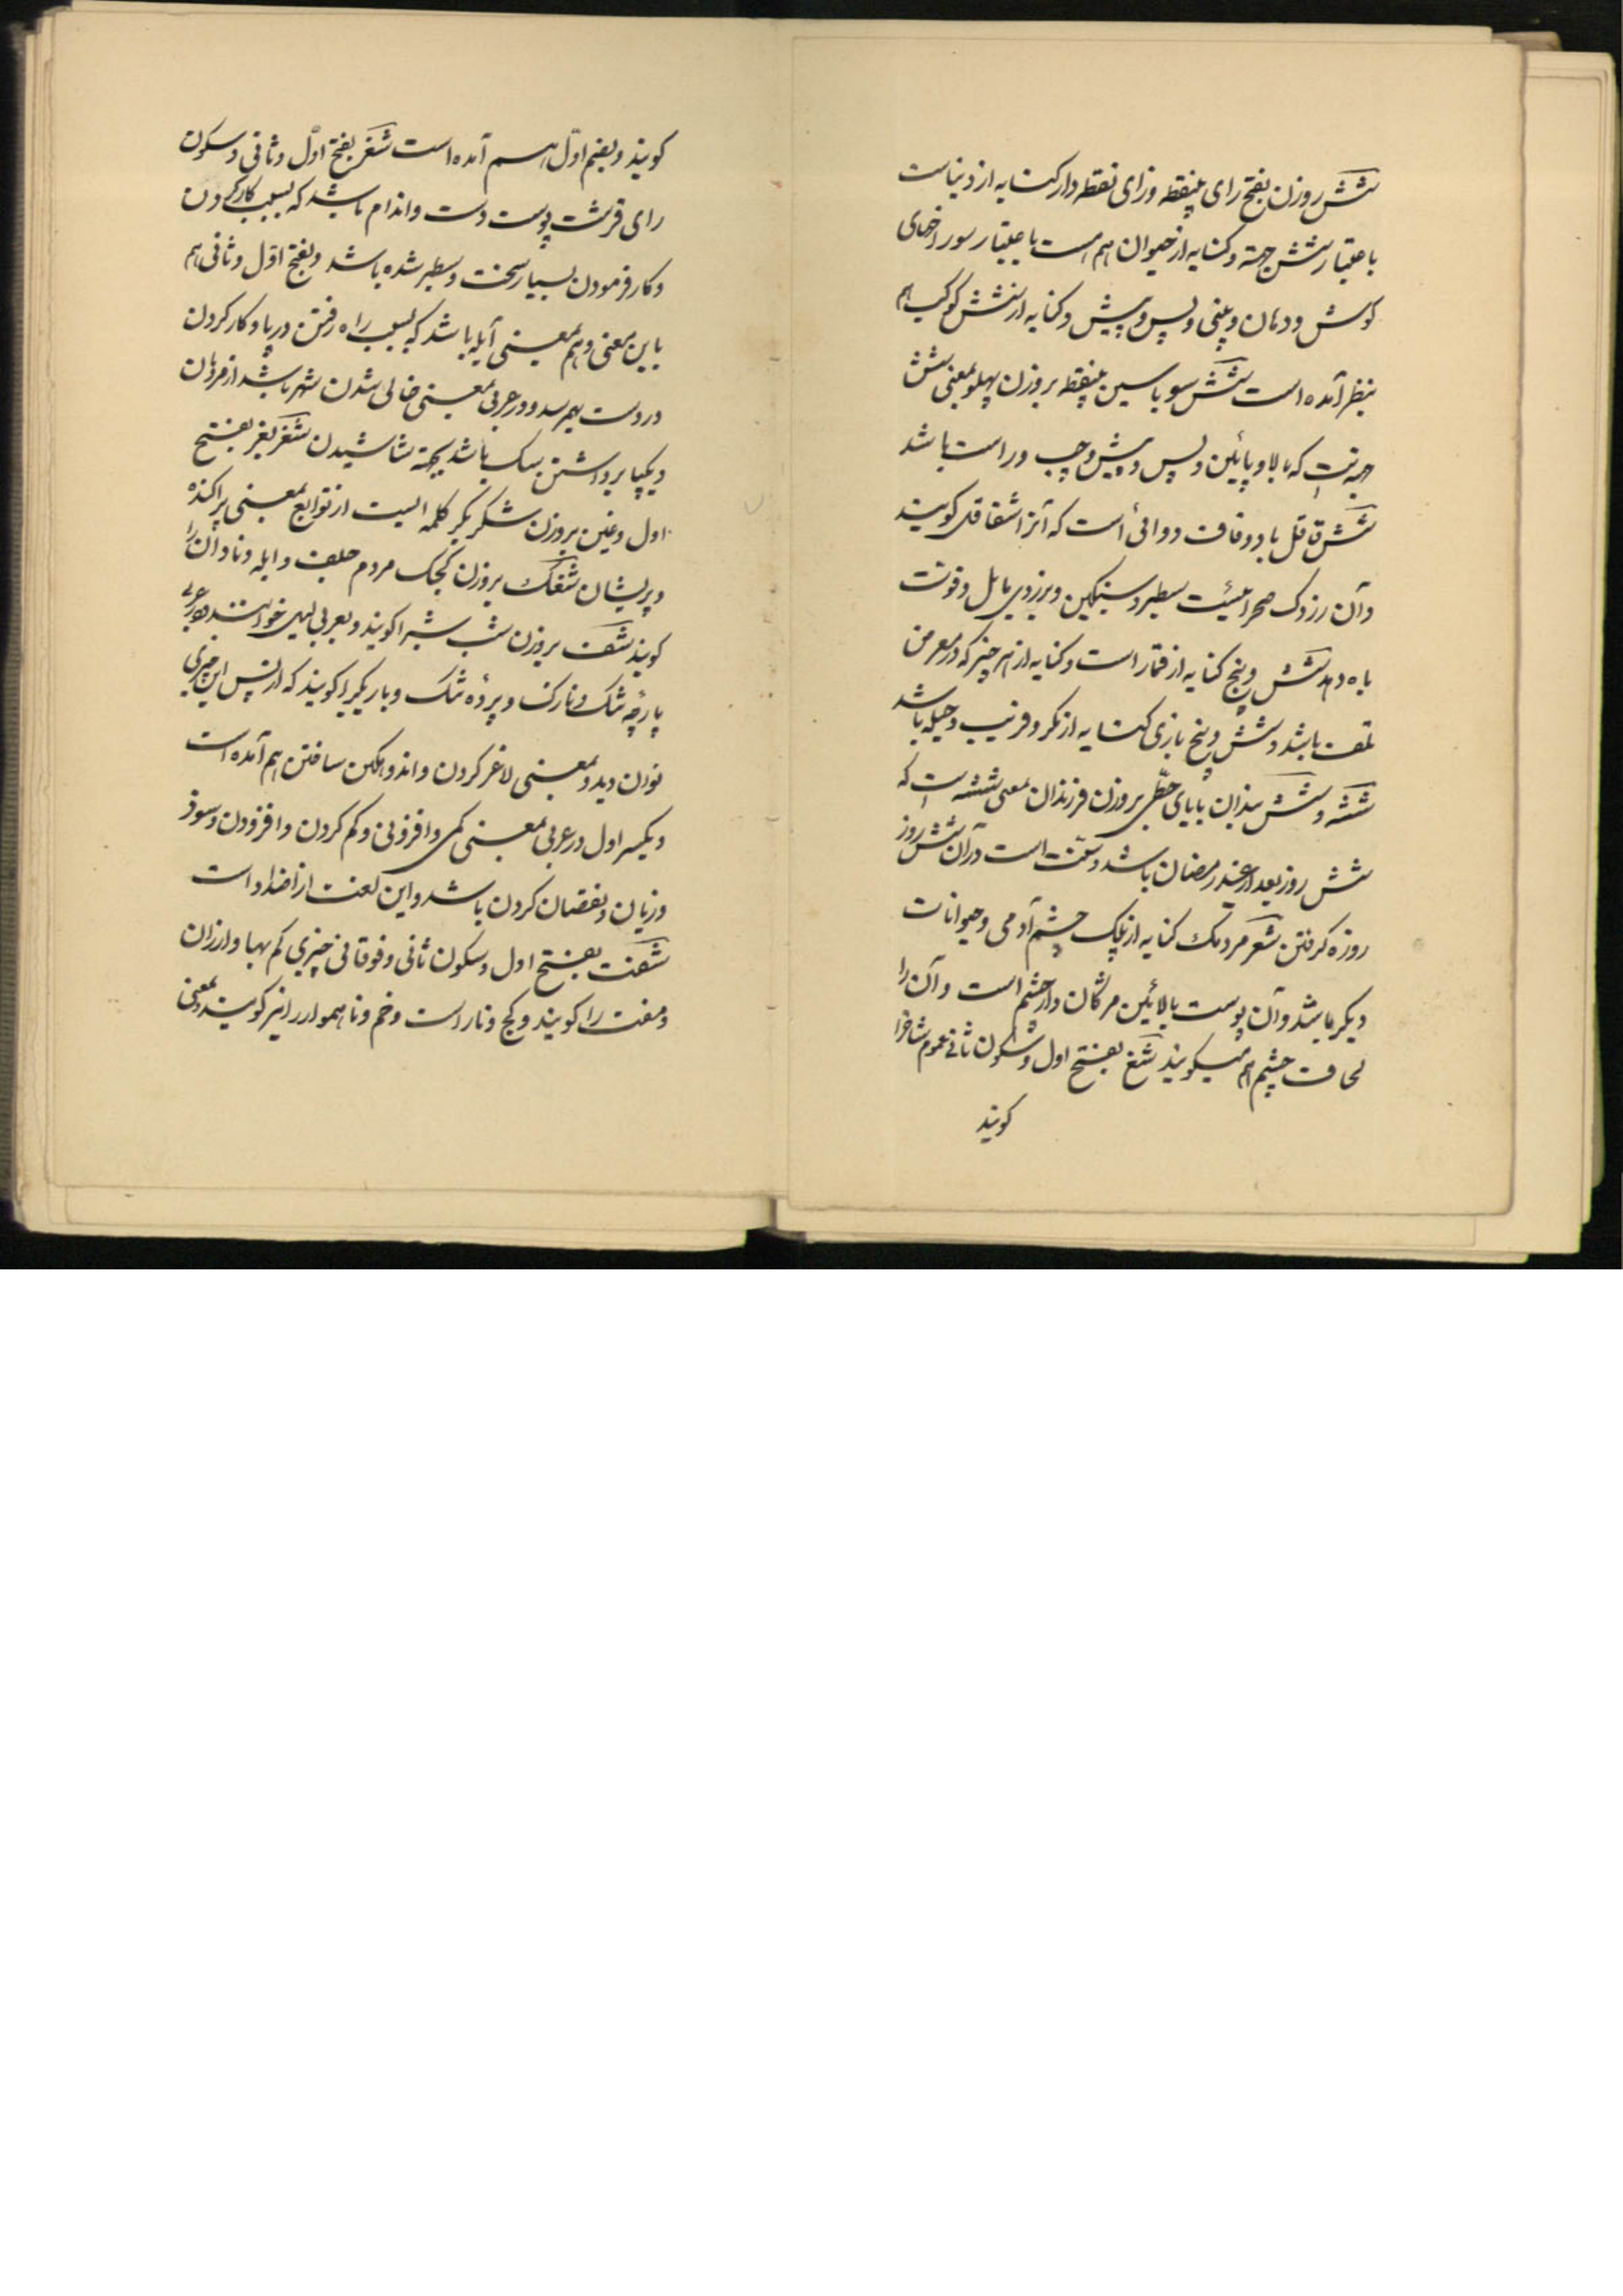 شش روزن بفتح رای بینقطه وزای نقطه دار کنایه از دنیاست
باعتبار شش جهة و کنایه از حیوان هم هست باعتبار سوراخهای
کوش ودهان وبینی وپس وپیش وکنایه از شش کوکب هم
بنظر آمده است شش سو باسین بینقطه بروزن پهلو بمعنی شش
جهتست که بالا و پائین وپس وپیش وچپ وراست باشد
شش قاقل با دو قاف دوائی است که آنرا شقاقل کویند
وآن زردک صحرائیست سطبر وسنکین وبزردی مایل وقوت
باه دهد شش وپنج کنایه از قمار است وکنایه از هر چیز که در معرض
تلف باشد وشش وپنج بازی کنایه از مکر وفریب وحیله باشد
ششه وشش بندان بابای حطی بروزن فرزندان بمعنی ششه است که
شش روز بعد از عید رمضان باشد وسنّت است در آن شش روز
روزه کرفتن شعر مردمک کنایه از پلک چشم آدمی وحیوانات
دیکر باشد وآن پوست بالائین مژکان دار چشم است وآن را
لحاف چشم هم میکویند شغ بفتح اول وسکون ثانی عموم شاخرا
کویند
کویند وبضم اوّل هم آمده است شغر بفتح اوّل وثانی وسکون
رای قرشت پوست دست واندام باشد که بسبب کار کردن
وکار فرمودن بسیار سخت وسطبر شده باشد وبفتح اوّل وثانی هم
باین معنی وهم بمعنی آبله باشد که بسبب راه رفتن در پا وکار کردن
در دست بهم رسد ودر عربی بمعنی خالی شدن شهر باشد از مردمان
ویکپا برداشتن سک باشد بجهة شاشیدن شغر بغر بفتح
اول وغین بروزن شکر بکر کلمه ایست از توابع بمعنی پراکنده
وپریشان شغک بروزن کجک مردم جلف وابله ونادان را
کویند شف بروزن شب شب را کویند وبعربی لیل خوانند ودر عربی
پارچه تنک ونازک وپرده تنک وباریک را کویند که از پس این چیزی
توان دید وبمعنی لاغر کردن واندوهکین ساختن هم آمده است
وبکسر اول در عربی بمعنی کمی وافزونی وکم کردن وافزودن وسود
وزیان ونقصان کردن باشد واین لغت از اضداد است
شفت بفتح اول وسکون ثانی وفوقانی چیزی کم بها وارزان
ومفت را کویند وکج وناراست وخم وناهموار را نیز کویند وبمعنی